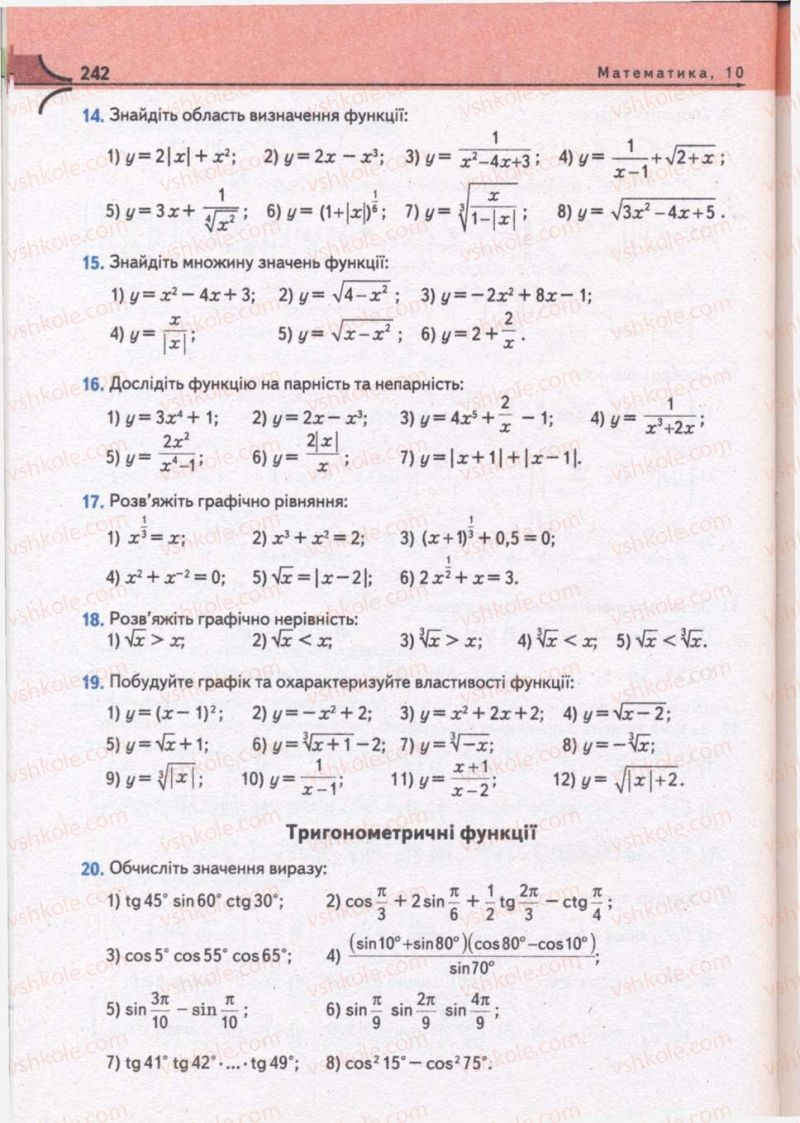 242
Математика, 10
14. Знайдіть область визначення функції:
1) y = 2|x| + x²; 2) y = 2x − x³; 3) y = 1/(x²−4x+3); 4) y = 1/(x−1) + √(2+x);
5) y = 3x + 1/⁴√(x²); 6) y = (1+|x|)^(1/6); 7) y = ³√(x/(1−|x|)); 8) y = √(3x²−4x+5).
15. Знайдіть множину значень функції:
1) y = x² − 4x + 3; 2) y = √(4−x²); 3) y = −2x² + 8x − 1;
4) y = x/|x|; 5) y = √(x−x²); 6) y = 2 + 2/x.
16. Дослідіть функцію на парність та непарність:
1) y = 3x⁴ + 1; 2) y = 2x − x³; 3) y = 4x⁵ + 2/x − 1; 4) y = 1/(x³+2x);
5) y = 2x²/(x⁴−1); 6) y = 2|x|/x; 7) y = |x + 1| + |x − 1|.
17. Розв’яжіть графічно рівняння:
1) x^(1/3) = x; 2) x³ + x² = 2; 3) (x+1)^(1/3) + 0,5 = 0;
4) x² + x⁻² = 0; 5) √x = |x − 2|; 6) 2x^(1/2) + x = 3.
18. Розв’яжіть графічно нерівність:
1) √x > x; 2) √x < x; 3) ³√x > x; 4) ³√x < x; 5) √x < ³√x.
19. Побудуйте графік та охарактеризуйте властивості функції:
1) y = (x − 1)²; 2) y = −x² + 2; 3) y = x² + 2x + 2; 4) y = √(x − 2);
5) y = √x + 1; 6) y = ³√(x + 1) − 2; 7) y = ³√(−x); 8) y = −³√x;
9) y = ³√|x|; 10) y = 1/(x−1); 11) y = (x+1)/(x−2); 12) y = √(|x|+2).
Тригонометричні функції
20. Обчисліть значення виразу:
1) tg 45° sin 60° ctg 30°; 2) cos π/3 + 2 sin π/6 + 1/2 tg 2π/3 − ctg π/4;
3) cos 5° cos 55° cos 65°; 4) (sin10°+sin80°)(cos80°−cos10°)/sin70°;
5) sin 3π/10 − sin π/10; 6) sin π/9 sin 2π/9 sin 4π/9;
7) tg 41° tg 42°·...·tg 49°; 8) cos² 15° − cos² 75°.